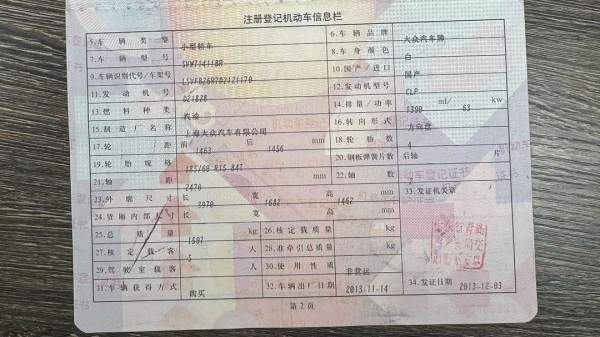 注册登记机动车信息栏
5.车辆类型 小型轿车 6.车辆品牌 大众汽车牌
7.车辆型号 SVW71411BR 8.车身颜色 白
9.车辆识别代号/车架号 10.国产/进口 国产
11.发动机号 D21820 12.发动机型号 CLP
13.燃料种类 汽油 14.排量/功率 1390 ml/ 63 kw
15.制造厂名称 上海大众汽车有限公司 16.转向形式 方向盘
17.轮距 前 1463 后 1456 mm 18.轮胎数 4
19.轮胎规格 185/60 R15 84T 20.钢板弹簧片数 后轴 片
21.轴距 2470 mm 22.轴数 2
23.外廓尺寸 长 3970 宽 1682 高 1462 mm 33.发证机关章
24.货厢内部尺寸 长 宽 高 mm
25.总质量 1597 kg 26.核定载质量 kg
27.核定载客 5 人 28.准牵引总质量 kg
29.驾驶室载客 人 30.使用性质 非营运
31.车辆获得方式 购买 32.车辆出厂日期 2013-11-14 34.发证日期 2013-12-03
第2页